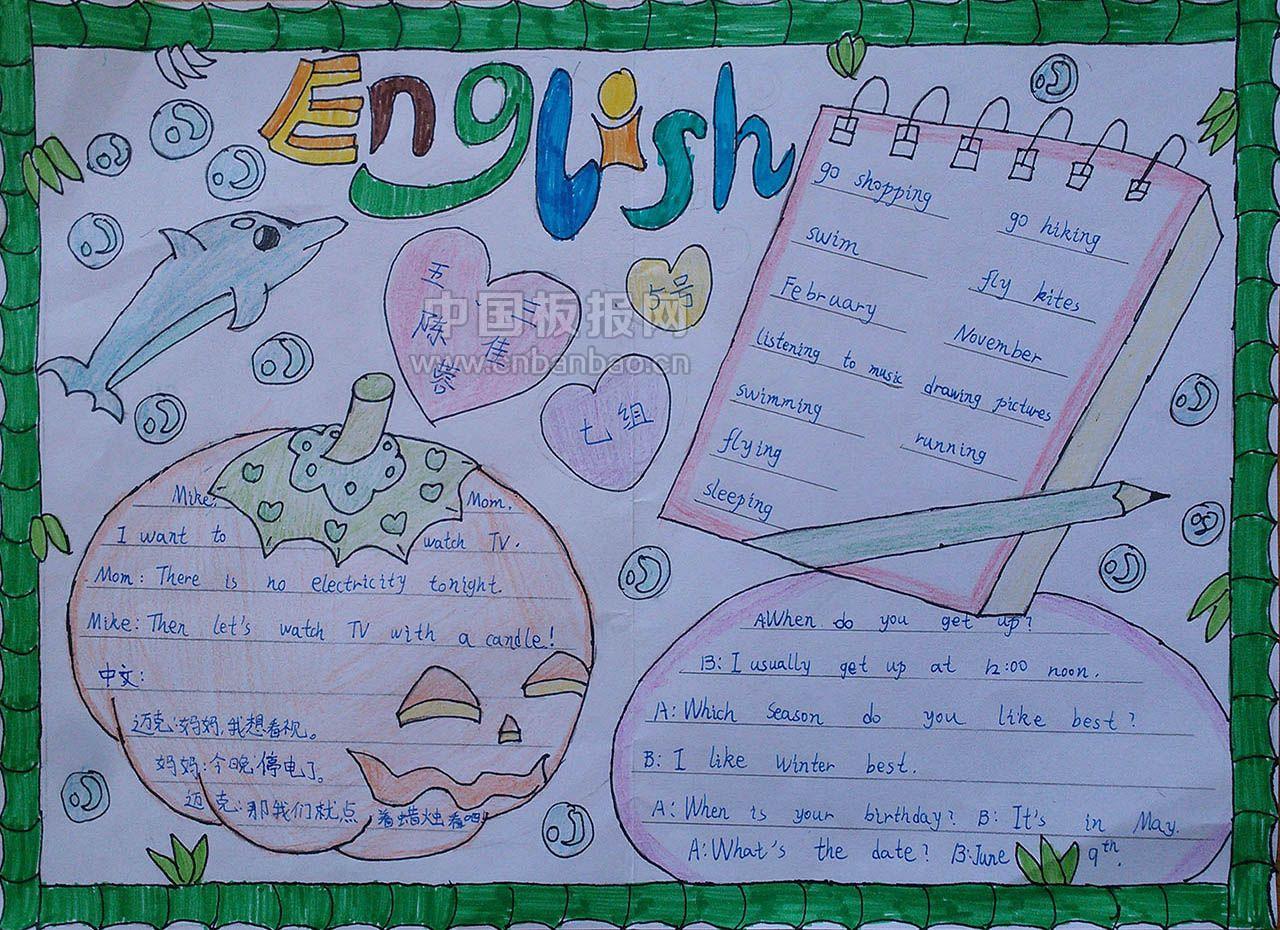 English
五、三
陈隹蓉
5号
七组
中国板报网
www.cnbanbao.cn
go shopping
go hiking
swim
fly kites
February
November
listening to music
drawing pictures
swimming
running
flying
sleeping
Mike: Mom.
I want to watch TV.
Mom: There is no electricity tonight.
Mike: Then let's watch TV with a candle!
中文:
迈克:妈妈,我想看视。
妈妈:今晚停电了。
迈克:那我们就点着蜡烛看吧!
AWhen do you get up?
B: I usually get up at 12:00 noon.
A: Which season do you like best?
B: I like winter best.
A: When is your birthday? B: It's in May.
A: What's the date? B: June 9th.